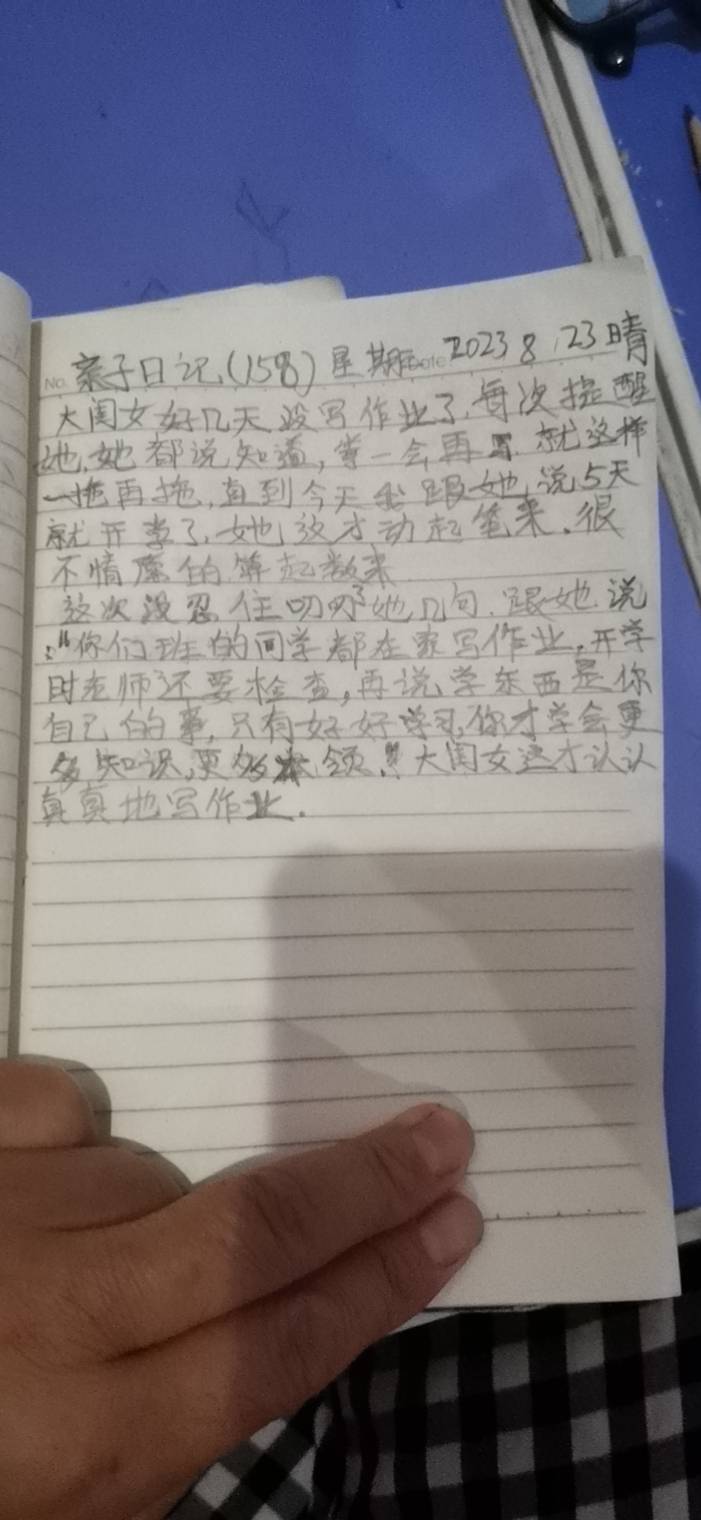 No. 亲子日记(158) 星期 Date 2023 8.23 晴
大闺女好几天没写作业了,每次提醒
她,她都说知道,等一会再写.就这样
一拖再拖,直到今天我跟她说5天
就开学了,她这才动起笔来.很
不情愿的算起数来
这次没忍住叨叨了她几句.跟她说
:"你们班的同学都在家写作业,开学
时老师还要检查,再说学东西是你
自己的事,只有好好学习,你才学会更
多知识,更多本领!"大闺女这才认认
真真地写作业.